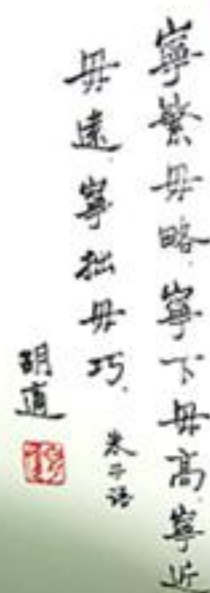 寧繁毋略,寧下毋高,寧近
毋遠,寧拙毋巧.
朱子语
胡適